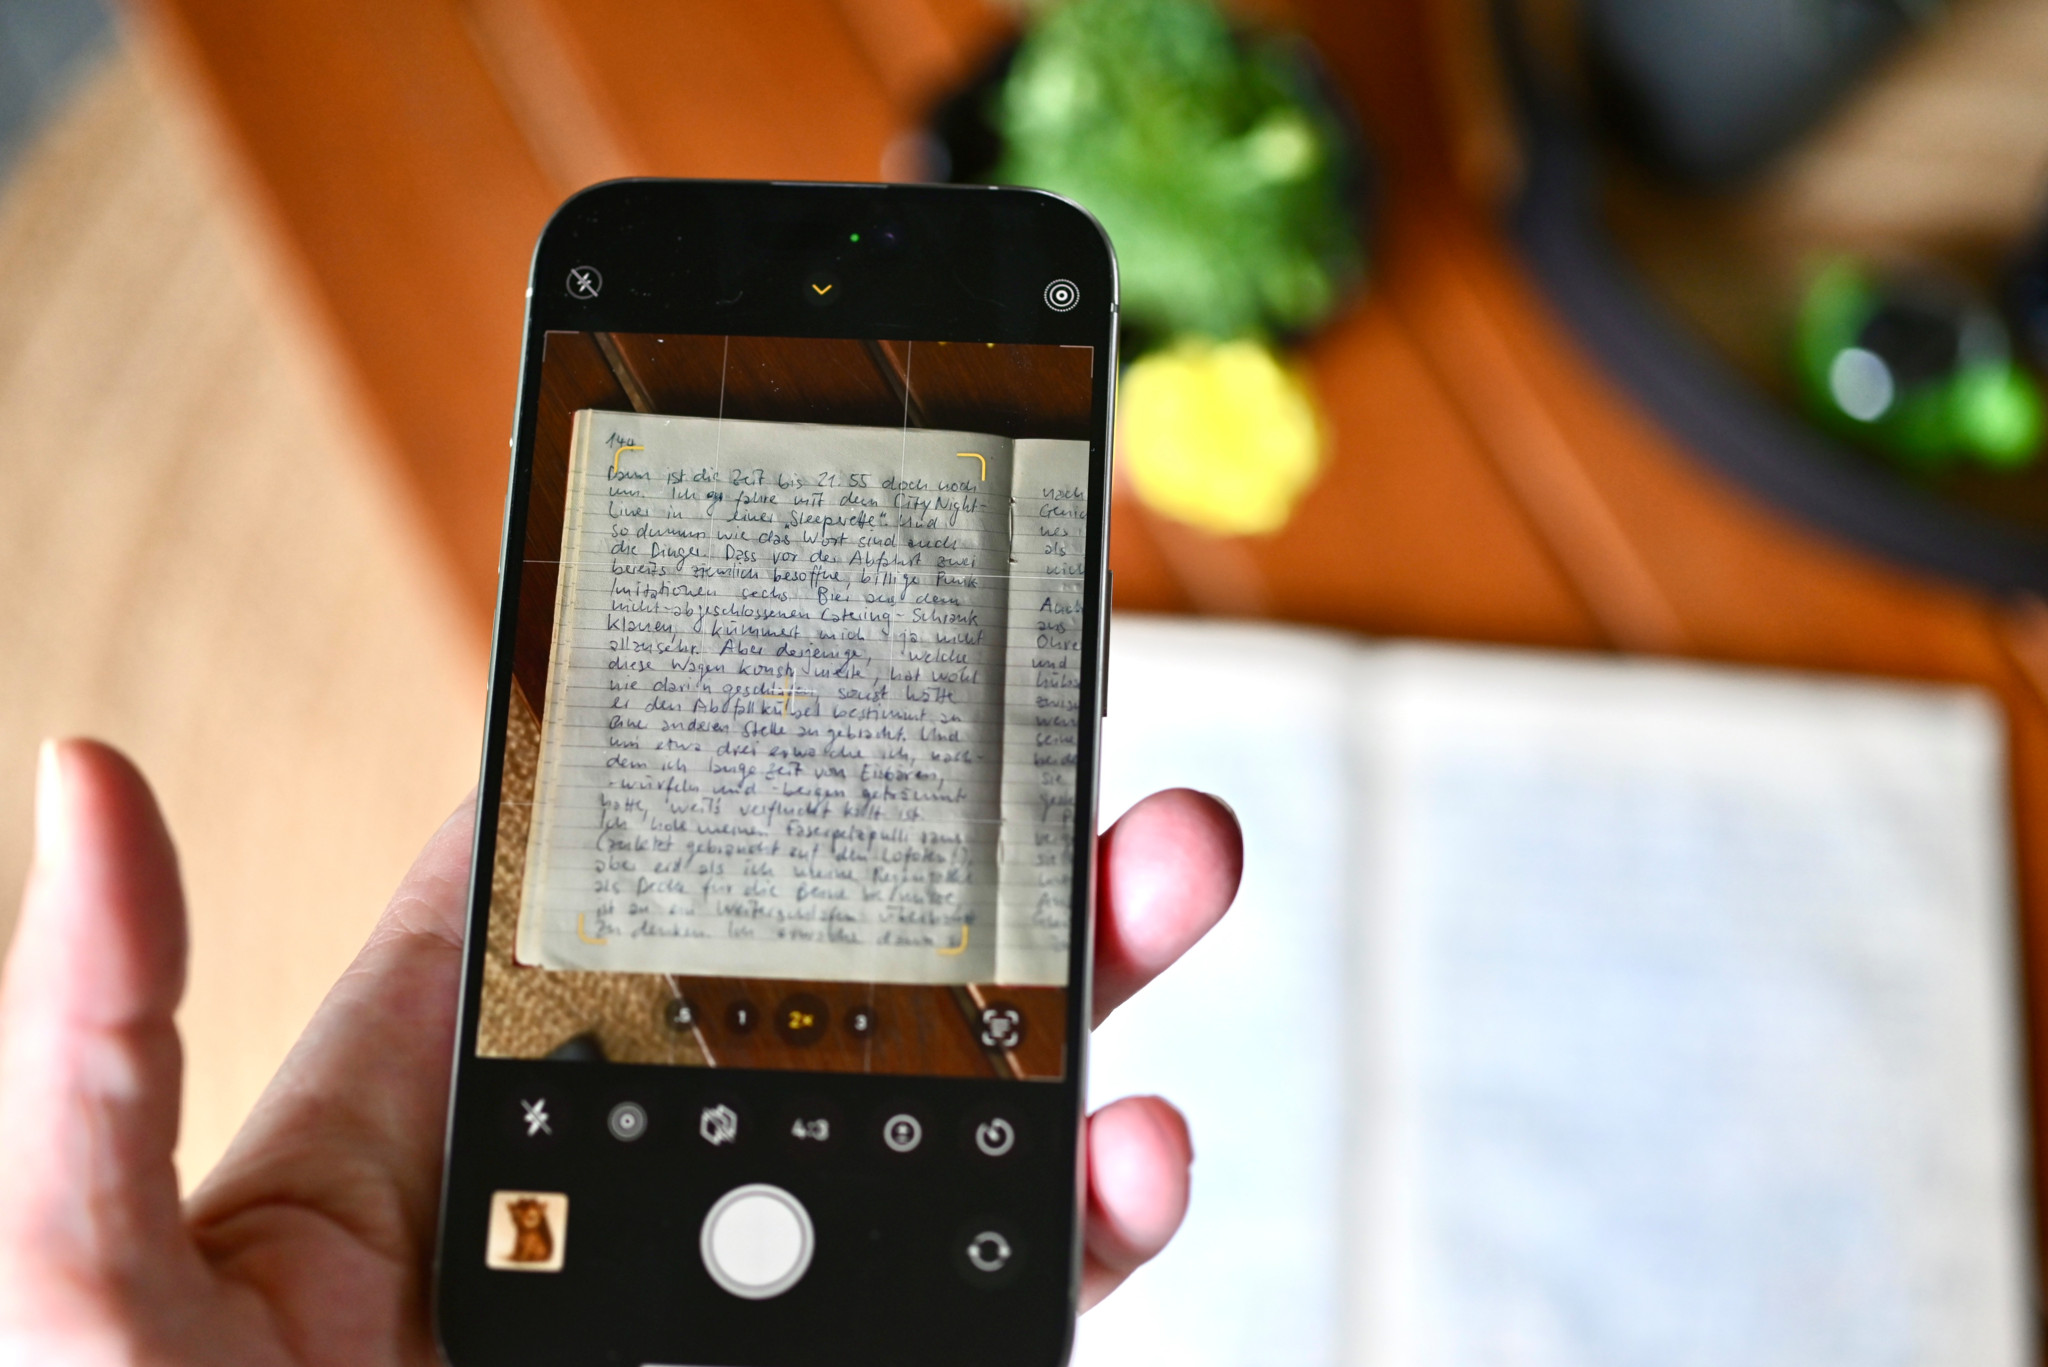 144
Dann ist die Zeit bis 21.55 doch noch
um. Ich fahre mit dem CityNight-
Liner in einer "Sleeperette". Und
so dumm wie das Wort sind auch
die Dinger. Dass vor der Abfahrt zwei
bereits ziemlich besoffne, billige Punk
Imitationen sechs Bier aus dem
nicht-abgeschlossenen Catering-Schrank
klauen, kümmert mich ja nicht
allzusehr. Aber derjenige, welche
diese Wagen konstruierte, hat wohl
nie darin geschlafen, sonst hätte
er den Abfallkübel bestimmt an
eine anderen Stelle angebracht. Und
um etwa drei erwache ich, nach-
dem ich lange Zeit von Eisbären,
-würfeln und -bergen geträumt
hatte, weil's verflucht kalt ist.
Ich hole meinen Faserpelzpulli raus
(zuletzt gebraucht auf den Lofoten!),
aber erst als ich meine Regenjacke
als Decke für die Beine benutze,
ist an ein Weiterschlafen überhaupt
zu denken. Ich erwache dann
nach
als
und
.5 1 2× 3
4:3